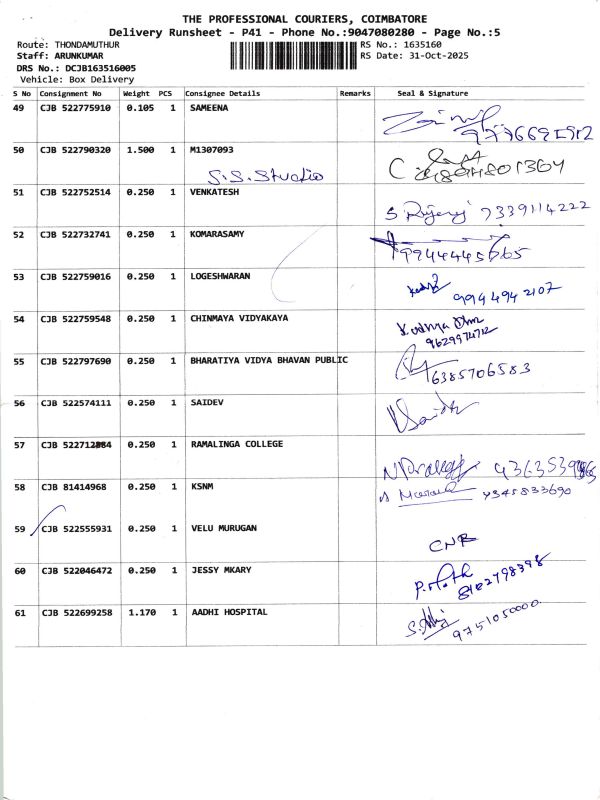 THE PROFESSIONAL COURIERS, COIMBATORE
Delivery Runsheet - P41 - Phone No.:9047080280 - Page No.:5
Route: THONDAMUTHUR RS No.: 1635160
Staff: ARUNKUMAR RS Date: 31-Oct-2025
DRS No.: DCJB163516005
Vehicle: Box Delivery
S No Consignment No Weight PCS Consignee Details Remarks Seal & Signature
49 CJB 522775910 0.105 1 SAMEENA
50 CJB 522790320 1.500 1 M1307093
S.S. Studio
51 CJB 522752514 0.250 1 VENKATESH
7339114222
52 CJB 522732741 0.250 1 KOMARASAMY
53 CJB 522759016 0.250 1 LOGESHWARAN
9944942107
54 CJB 522759548 0.250 1 CHINMAYA VIDYAKAYA
9629974712
55 CJB 522797690 0.250 1 BHARATIYA VIDYA BHAVAN PUBLIC
6385706583
56 CJB 522574111 0.250 1 SAIDEV
57 CJB 0.250 1 RAMALINGA COLLEGE
58 CJB 81414968 0.250 1 KSNM
9345833690
59 CJB 522555931 0.250 1 VELU MURUGAN
CNR
60 CJB 522046472 0.250 1 JESSY MKARY
61 CJB 522699258 1.170 1 AADHI HOSPITAL
9751050000